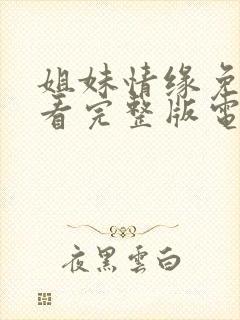 姐妹情缘免
看完整版電
夜黑雲白